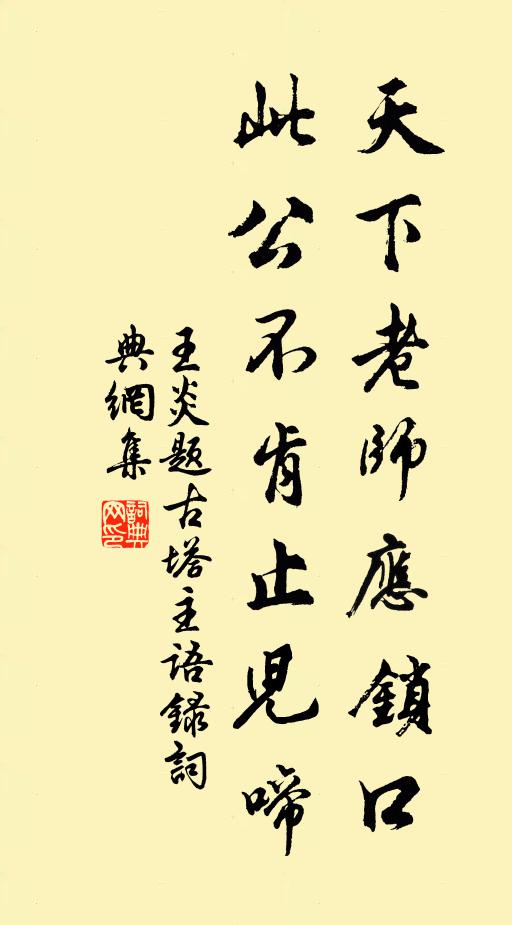 天下老師應鎖口
此公不肯止兒啼
王炎題古塔主語錄詞
典網集
詞典
网印